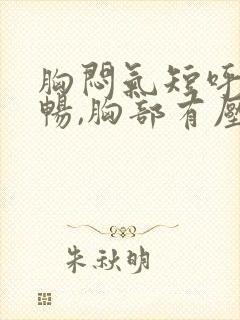 胸悶氣短呼
暢,胸部有壓
朱秋明